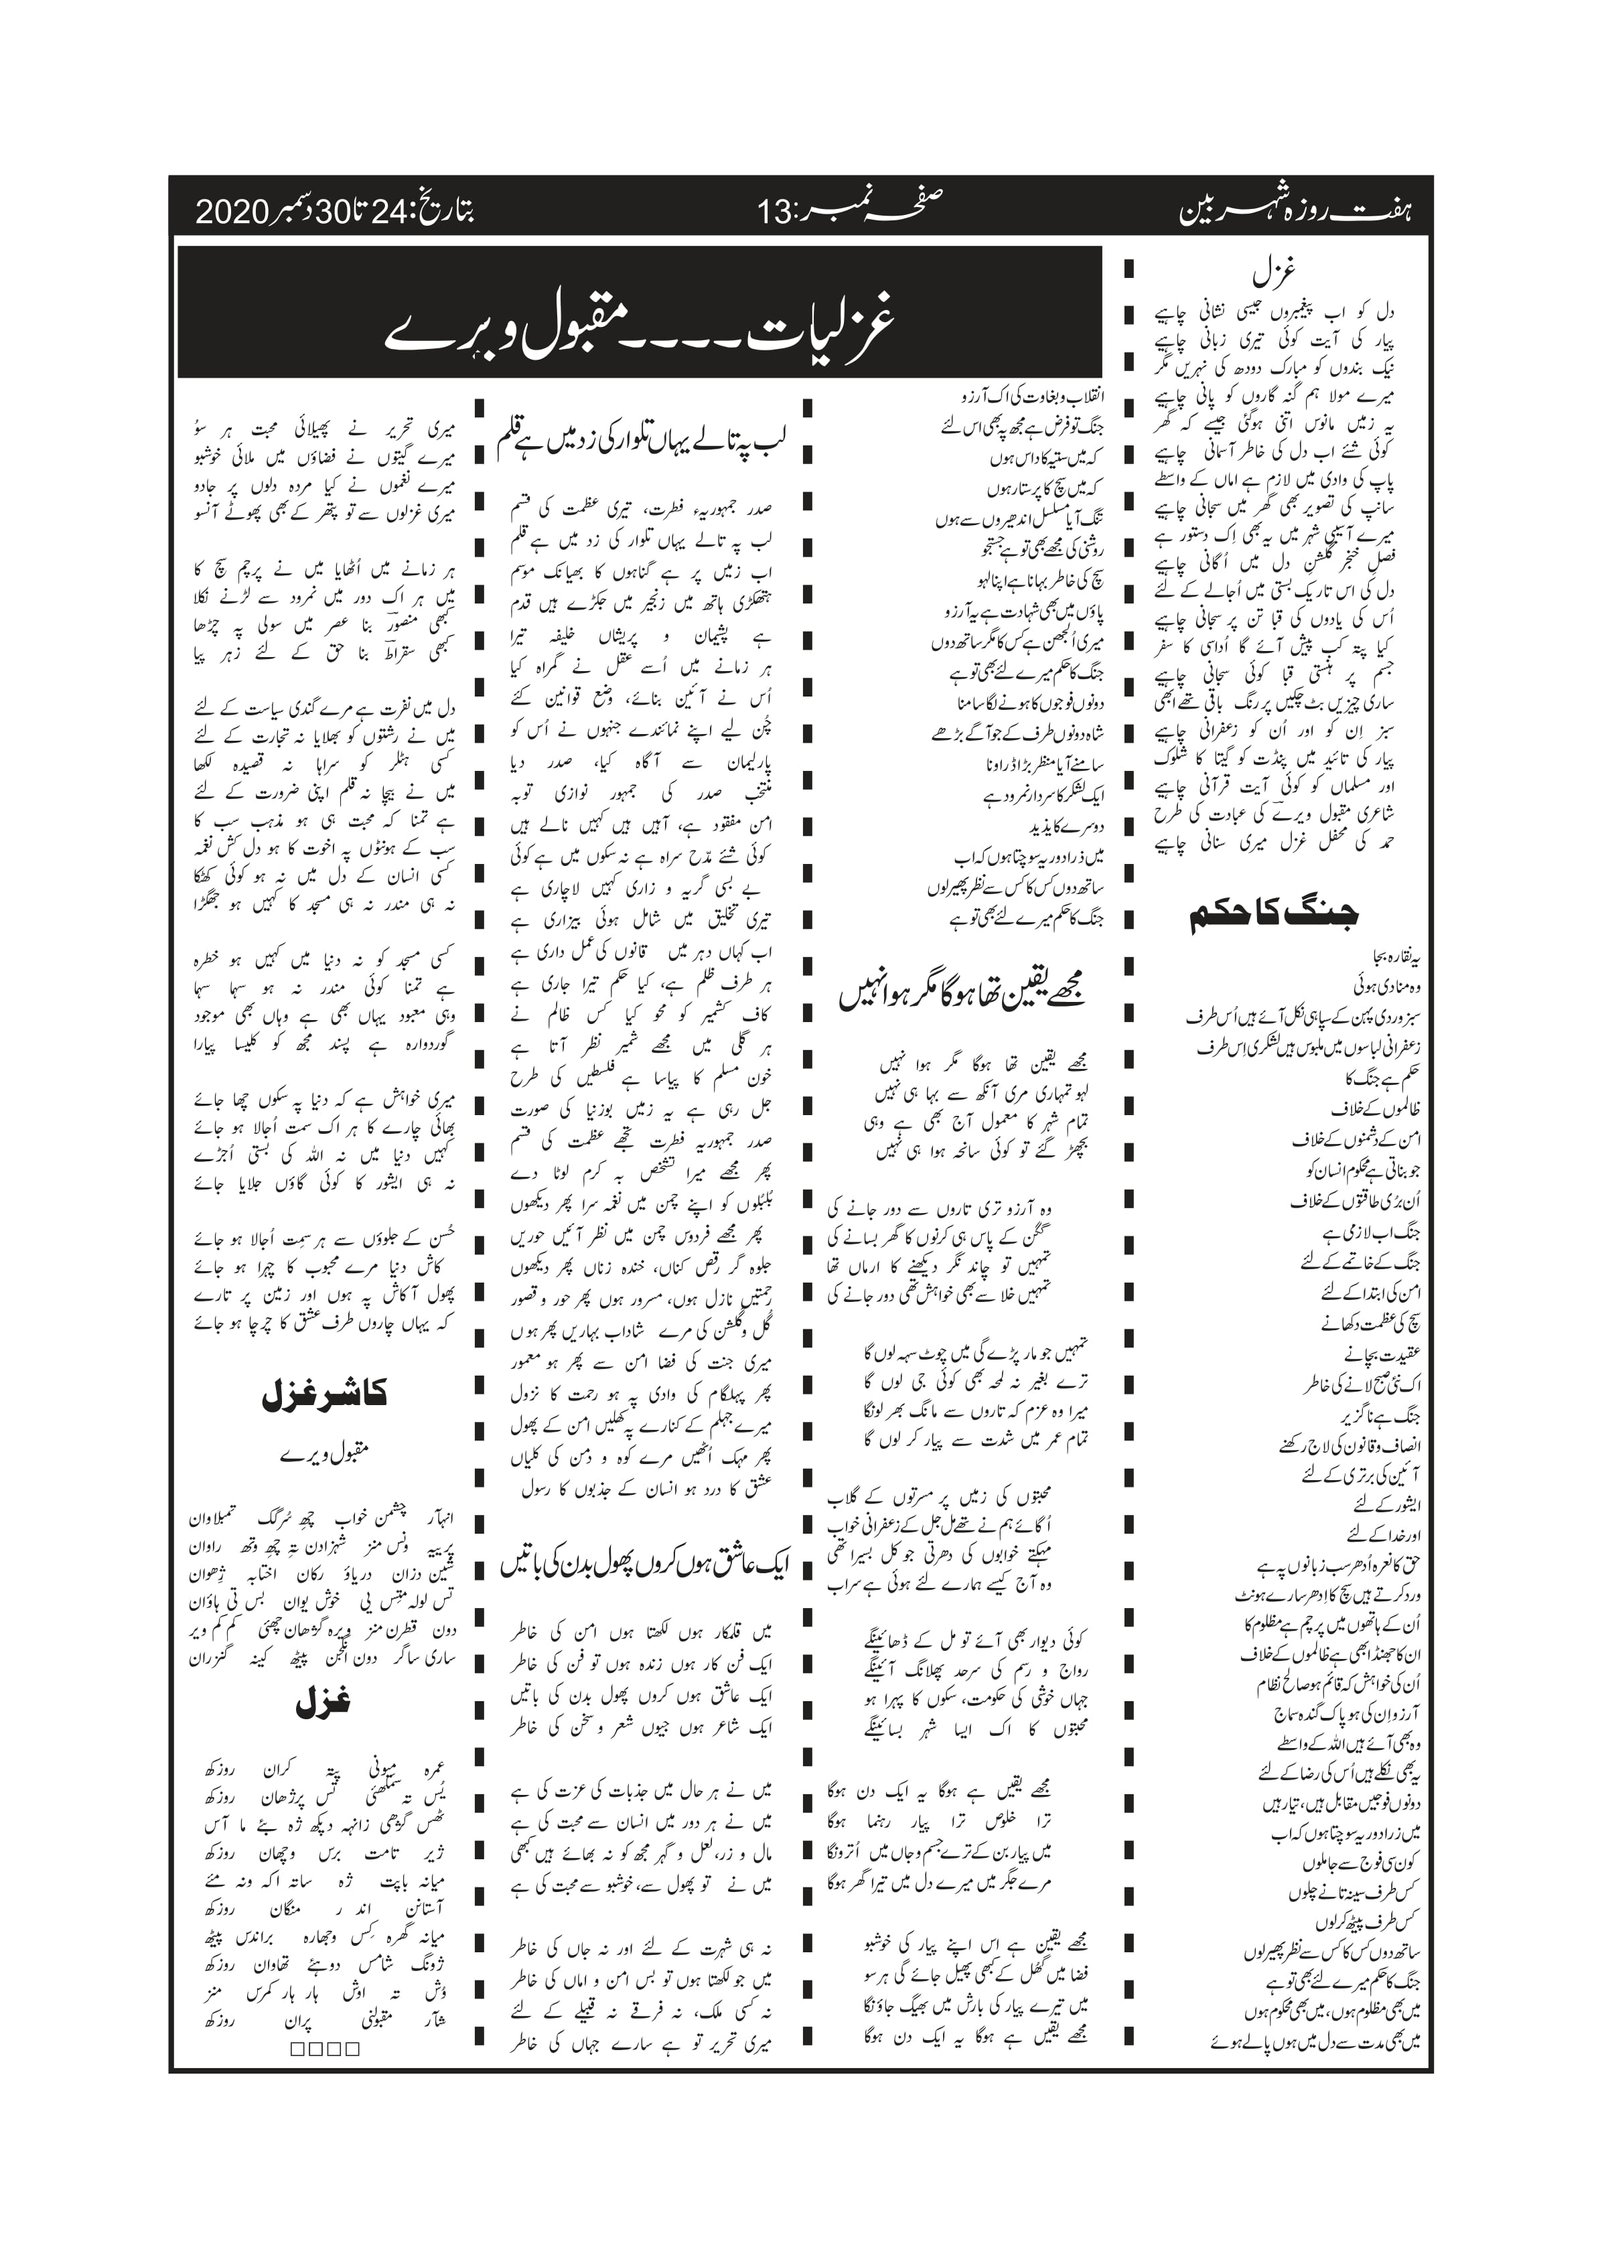 ہفت روزہ شہر بین
صفحہ نمبر:13
بتاریخ:24 تا 30 دسمبر 2020
غزلیات۔۔۔۔مقبول ویرے
غزل
دل کو اب پیغمبروں جیسی نشانی چاہیے
پیار کی آیت کوئی تیری زبانی چاہیے
نیک بندوں کو مبارک دودھ کی نہریں مگر
میرے مولا ہم گنہ گاروں کو پانی چاہیے
یہ زمیں مانوس اتنی ہوگئی جیسے کہ گھر
کوئی شئے اب دل کی خاطر آسمانی چاہیے
پاپ کی وادی میں لازم ہے اماں کے واسطے
سانپ کی تصویر بھی گھر میں سجانی چاہیے
میرے آسیبی شہر میں یہ بھی اِک دستور ہے
فصلِ خنجر گلشنِ دل میں اُگانی چاہیے
دل کی اس تاریک بستی میں اُجالے کے لئے
اُس کی یادوں کی قبا تن پر سجانی چاہیے
کیا پتہ کب پیش آئے گا اُداسی کا سفر
جسم پر ہنستی قبا کوئی سجانی چاہیے
ساری چیزیں بٹ چکیں پر رنگ باقی تھے ابھی
سبز اِن کو اور اُن کو زعفرانی چاہیے
پیار کی تائید میں پنڈت کو گیتا کا شلوک
اور مسلماں کو کوئی آیت قرآنی چاہیے
شاعری مقبول ویرےؔ کی عبادت کی طرح
حمد کی محفل غزل میری سنانی چاہیے
جنگ کا حکم
یہ نقارہ بجا
وہ منادی ہوئی
سبز وردی پہن کے سپاہی نکل آئے ہیں اُس طرف
زعفرانی لباسوں میں ملبوس ہیں لشکری اِس طرف
حکم ہے جنگ کا
ظالموں کے خلاف
امن کے دشمنوں کے خلاف
جو بناتی ہے محکوم انسان کو
اُن بُری طاقتوں کے خلاف
جنگ اب لازمی ہے
جنگ کے خاتمے کے لئے
امن کی ابتدا کے لئے
سچ کی عظمت دکھانے
عقیدت بچانے
اک نئی صبح لانے کی خاطر
جنگ ہے ناگزیر
انصاف و قانون کی لاج رکھنے
آئین کی برتری کے لئے
ایشور کے لئے
اور خدا کے لئے
حق کا نعرہ اُدھر سب زبانوں پہ ہے
ورد کرتے ہیں سچ کا اِدھر سارے ہونٹ
اُن کے ہاتھوں میں پرچم ہے مظلوم کا
ان کا جھنڈا بھی ہے ظالموں کے خلاف
اُن کی خواہش کہ قائم ہو صالح نظام
آرزو اِن کی ہو پاک گندہ سماج
وہ بھی آئے ہیں اللہ کے واسطے
یہ بھی نکلے ہیں اُس کی رضا کے لئے
دونوں فوجیں مقابل ہیں، تیار ہیں
میں زرا دور یہ سوچتا ہوں کہ اب
کون سی فوج سے جا ملوں
کس طرف سینہ تانے چلوں
کس طرف پیٹھ کر لوں
ساتھ دوں کس کا کس سے نظر پھیر لوں
جنگ کا حکم میرے لئے بھی تو ہے
میں بھی مظلوم ہوں، میں بھی محکوم ہوں
میں بھی مدت سے دل میں ہوں پالے ہوئے
انقلاب و بغاوت کی اک آرزو
جنگ تو فرض ہے مجھ پہ بھی اس لئے
کہ میں ستیہ کا داس ہوں
کہ میں سچ کا پرستار ہوں
تنگ آیا مسلسل اندھیروں سے ہوں
روشنی کی مجھے بھی تو ہے جستجو
سچ کی خاطر بہانا ہے اپنا لہو
پاؤں میں بھی شہادت ہے یہ آرزو
میری اُلجھن ہے کس کا مگر ساتھ دوں
جنگ کا حکم میرے لئے بھی تو ہے
دونوں فوجوں کا ہونے لگا سامنا
شاہ دونوں طرف کے جو آگے بڑھے
سامنے آیا منظر بڑا ڈراونا
ایک لشکر کا سردار نمرود ہے
دوسرے کا یذید
میں ذرا دور یہ سوچتا ہوں کہ اب
ساتھ دوں کس کا کس سے نظر پھیر لوں
جنگ کا حکم میرے لئے بھی تو ہے
مجھے یقین تھا ہوگا مگر ہوا نہیں
مجھے یقین تھا ہوگا مگر ہوا نہیں
لہو تمہاری مری آنکھ سے بہا ہی نہیں
تمام شہر کا معمول آج بھی ہے وہی
بچھڑ گئے تو کوئی سانحہ ہوا ہی نہیں
وہ آرزو تری تاروں سے دور جانے کی
گگن کے پاس ہی کرنوں کا گھر بسانے کی
تمہیں تو چاند نگر دیکھنے کا ارماں تھا
تمہیں خلا سے بھی خواہش تھی دور جانے کی
تمہیں جو مار پڑے گی میں چوٹ سہہ لوں گا
ترے بغیر نہ لمحہ بھی کوئی جی لوں گا
میرا وہ عزم کہ تاروں سے مانگ بھر لونگا
تمام عمر میں شدت سے پیار کر لوں گا
محبتوں کی زمیں پر مسرتوں کے گلاب
اُگائے ہم نے تھے مل جل کے زعفرانی خواب
مہکتے خوابوں کی دھرتی جو کل بسیرا تھی
وہ آج کیسے ہمارے لئے ہوئی ہے سراب
کوئی دیوار بھی آئے تو مل کے ڈھائینگے
رواج و رسم کی سرحد پھلانگ آئینگے
جہاں خوشی کی حکومت، سکوں کا پہرا ہو
محبتوں کا اک ایسا شہر بسائینگے
مجھے یقیں ہے ہوگا یہ ایک دن ہوگا
ترا خلوص ترا پیار رہنما ہوگا
میں پیار بن کے ترے جسم و جاں میں اُترونگا
مرے جگر میں میرے دل میں تیرا گھر ہوگا
مجھے یقین ہے اس اپنے پیار کی خوشبو
فضا میں گھُل کے کبھی پھیل جائے گی ہر سو
میں تیرے پیار کی بارش میں بھیگ جاؤنگا
مجھے یقیں ہے ہوگا یہ ایک دن ہوگا
لب پہ تالے یہاں تلوار کی زد میں ہے قلم
صدر جمہوریۂ فطرت، تیری عظمت کی قسم
لب پہ تالے یہاں تلوار کی زد میں ہے قلم
اب زمیں پر ہے گناہوں کا بھیانک موسم
ہتھکڑی ہاتھ میں زنجیر میں جکڑے ہیں قدم
ہے پشیمان و پریشاں خلیفہ تیرا
ہر زمانے میں اُسے عقل نے گمراہ کیا
اُس نے آئین بنائے، وضع قوانین کئے
چُن لیے اپنے نمائندے جنہوں نے اُس کو
پارلیمان سے آگاہ کیا، صدر دیا
منتخب صدر کی جمہور نوازی توبہ
امن مفقود ہے، آہیں ہیں کہیں نالے ہیں
کوئی شئے مدّح سراہ ہے نہ سکوں میں ہے کوئی
بے بسی گریہ و زاری کہیں لاچاری ہے
تیری تخلیق میں شامل ہوئی بیزاری ہے
اب کہاں دہر میں قانوں کی عمل داری ہے
ہر طرف ظلم ہے، کیا حکم تیرا جاری ہے
کاف کشمیر کو محو کیا کس ظالم نے
ہر گلی میں مجھے شمیر نظر آتا ہے
خون مسلم کا پیاسا ہے فلسطیں کی طرح
جل رہی ہے یہ زمیں بوزنیا کی صورت
صدر جمہوریہ فطرت تجھے عظمت کی قسم
پھر مجھے میرا تشخص بہ کرم لوٹا دے
بُلبُلوں کو اپنے چمن میں نغمہ سرا پھر دیکھوں
پھر مجھے فردوس چمن میں نظر آئیں حوریں
جلوہ گر رقص کناں، خندہ زناں پھر دیکھوں
رحمتیں نازل ہوں، مسرور ہوں پھر حور و قصور
گُل و گلشن کی مرے شاداب بہاریں پھر ہوں
میری جنت کی فضا امن سے پھر ہو معمور
پھر پہلگام کی وادی پہ ہو رحمت کا نزول
میرے جہلم کے کنارے پہ کھلیں امن کے پھول
پھر مہک اُٹھیں مرے کوہ و دمن کی کلیاں
عشق کا درد ہو انسان کے جذبوں کا رسول
ایک عاشق ہوں کروں پھول بدن کی باتیں
میں قلمکار ہوں لکھتا ہوں امن کی خاطر
ایک فن کار ہوں زندہ ہوں تو فن کی خاطر
ایک عاشق ہوں کروں پھول بدن کی باتیں
ایک شاعر ہوں جیوں شعر و سخن کی خاطر
میں نے ہر حال میں جذبات کی عزت کی ہے
میں نے ہر دور میں انسان سے محبت کی ہے
مال و زر، لعل و گہر مجھ کو نہ بھائے ہیں کبھی
میں نے تو پھول سے، خوشبو سے محبت کی ہے
نہ ہی شہرت کے لئے اور نہ جاں کی خاطر
میں جو لکھتا ہوں تو بس امن و اماں کی خاطر
نہ کسی ملک، نہ فرقے نہ قبیلے کے لئے
میری تحریر تو ہے سارے جہاں کی خاطر
میری تحریر نے پھیلائی محبت ہر سوُ
میرے گیتوں نے فضاؤں میں ملائی خوشبو
میرے نغموں نے کیا مردہ دلوں پر جادو
میری غزلوں سے تو پتھر کے بھی پھوٹے آنسو
ہر زمانے میں اُٹھایا میں نے پرچم سچ کا
میں ہر اک دور میں نمرود سے لڑنے نکلا
کبھی منصورؔ بنا عصر میں سولی پہ چڑھا
کبھی سقراطؔ بنا حق کے لئے زہر پیا
دل میں نفرت ہے مرے گندی سیاست کے لئے
میں نے رشتوں کو بھلایا نہ تجارت کے لئے
کسی ہٹلر کو سراہا نہ قصیدہ لکھا
میں نے بیچا نہ قلم اپنی ضرورت کے لئے
ہے تمنا کہ محبت ہی ہو مذہب سب کا
سب کے ہونٹوں پہ اخوت کا ہو دل کش نغمہ
کسی انسان کے دل میں نہ ہو کوئی کھٹکا
نہ ہی مندر نہ ہی مسجد کا کہیں ہو جھگڑا
کسی مسجد کو نہ دنیا میں کہیں ہو خطرہ
ہے تمنا کوئی مندر نہ ہو سہا سہا
وہی معبود یہاں بھی ہے وہاں بھی موجود
گوردوارہ ہے پسند مجھ کو کلیسا پیارا
میری خواہش ہے کہ دنیا پہ سکوں چھا جائے
بھائی چارے کا ہر اک سمت اُجالا ہو جائے
کہیں دنیا میں نہ اللہ کی بستی اُجڑے
نہ ہی ایشور کا کوئی گاؤں جلایا جائے
حُسن کے جلوؤں سے ہر سمِت اُجالا ہو جائے
کاش دنیا مرے محبوب کا چہرا ہو جائے
پھول آکاش پہ ہوں اور زمین پر تارے
کہ یہاں چاروں طرف عشق کا چرچا ہو جائے
کاشر غزل
مقبول ویرے
چشمن خواب چھِ سُرگک تمبلاوان
ونس منز شہزادن
شین دزان دریاؤ رکان
خوش یوان بس تی باؤان
دون قطرن منز ویرہ
ساری ساگر دون پیٹھ کینہ گنزران
غزل
عمرہ میونی پتہ کران روزکھ
یُس تہ تس پرژھان روزکھ
ژیر تامت برس وچھان روزکھ
میانہ باپت ژہ ساتہ اکہ ونہ متے
آستانن اندر منگان روزکھ
میانہ گھرہ کِس وجھارہ براندس پیٹھ
ژونگ شامس تھاوان روزکھ
وُش تہ اوش ہار ہار کمرس منز
شآر مقبولنی پران روزکھ